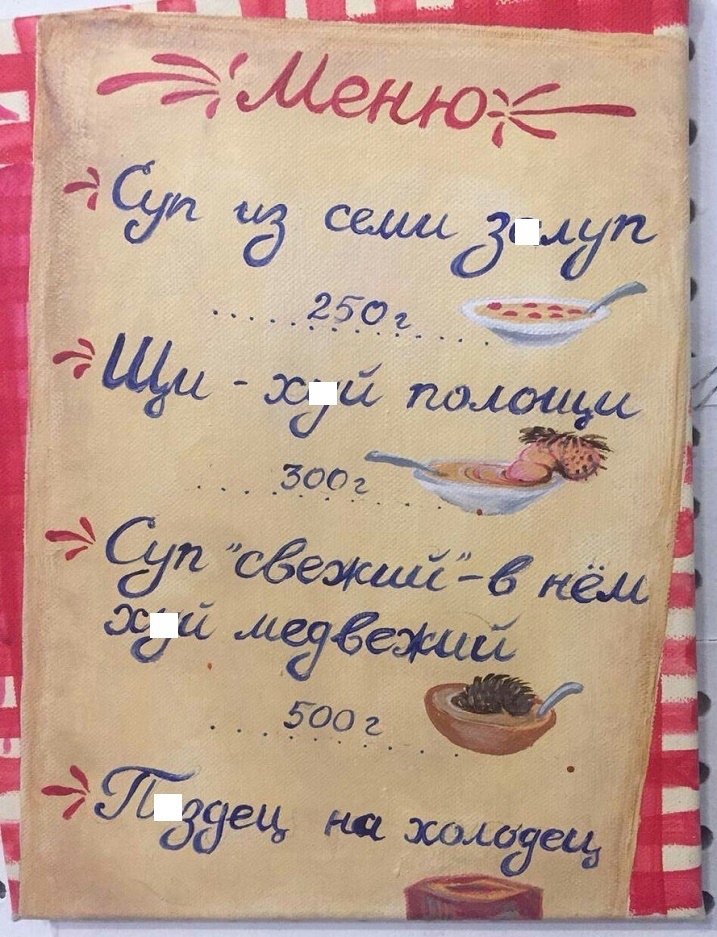 Меню
Суп из семи з□луп
250г
Щи - х□й полощи
300г
Суп "свежий" - в нём
х□й медвежий
500г
П□здец на холодец